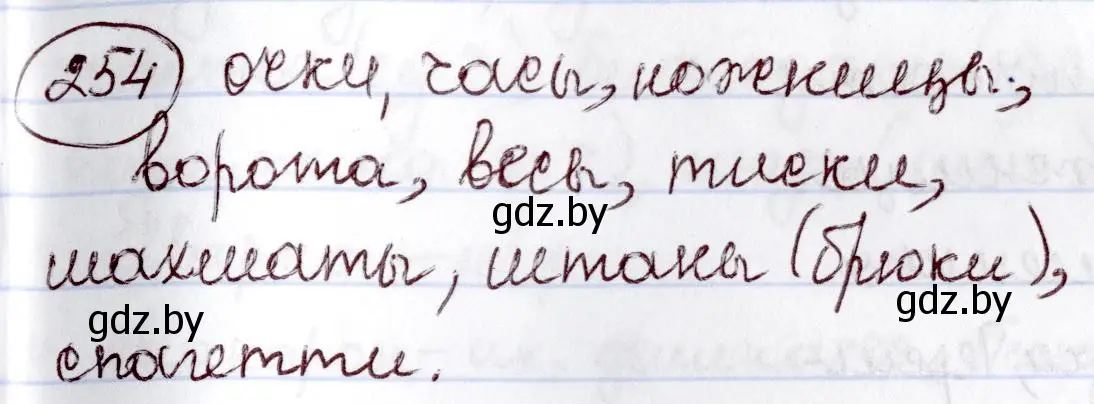 254 очки, часы, ножницы,
ворота, весы, тиски,
gdz.by
шахматы, штаны (брюки),
gdz.by
gdz.by
спагетти.